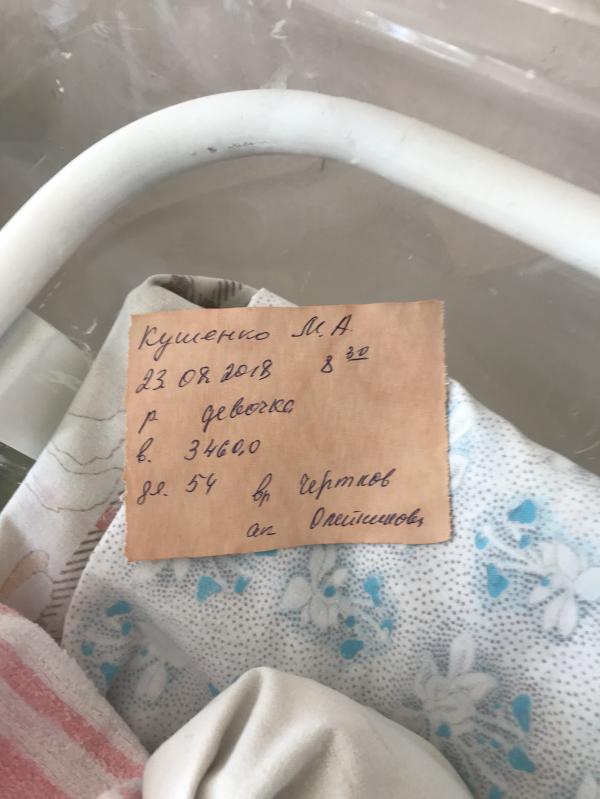 Кушенко М.А.
23 08 2018 8 30
р девочка
в. 3460,0
дл. 54 вр Чертков
ак Олейникова